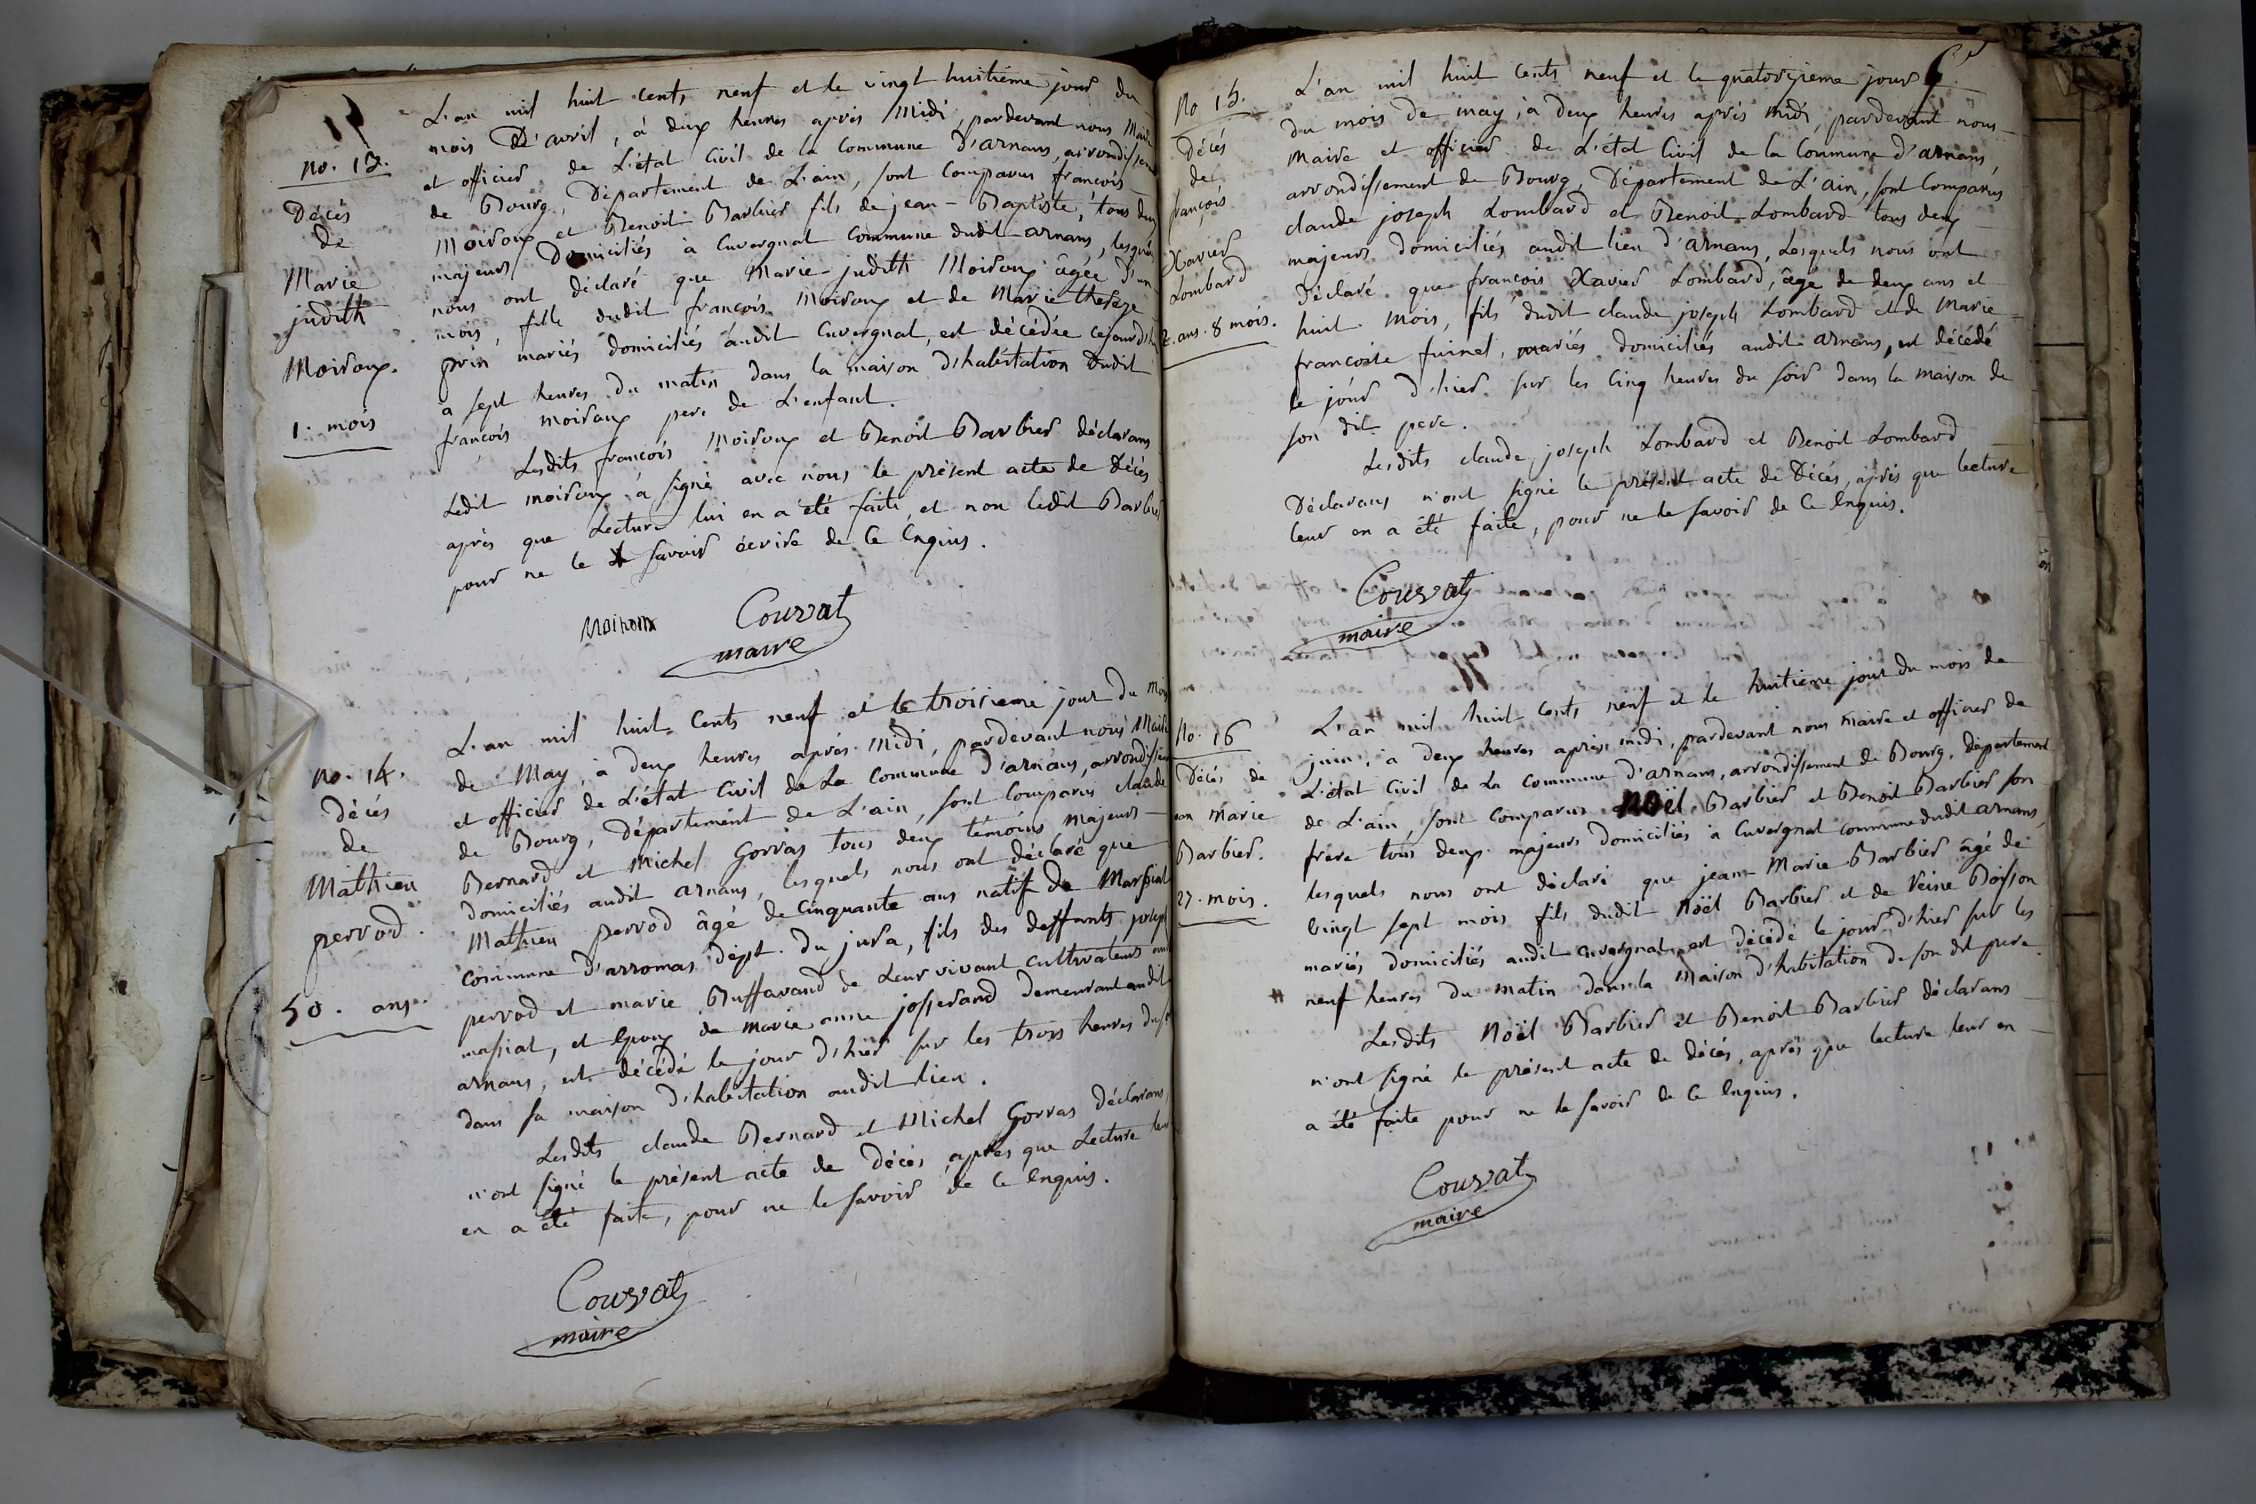 no. 13.
Décés
de
Marie
judith
Moiroux.
1. mois
L'an mil huit cents neuf et le vingt huitieme jour du
mois D'avril, à deux heures après Midi, pardevant nous Maire
et officier de L'état Civil de la Commune D'arnans, arrondissem
de Bourg, Département de L'ain, sont Comparus françois
Moiroux et Benoit Barbier fils de jean-Baptiste, tous deux
majeurs Domiciliés à Cuvergnat Commune dudit arnans, lesquels
nous ont déclaré que Marie-judith Moiroux âgée D'un
mois, fille dudit françois Moiroux et de Marie therese
prin mariés domiciliés audit Cuvergnat, est décédée cejourd'hui
a sept heures du matin dans la maison d'habitation dudit
françois moiroux pere de L'enfant.
Lesdits françois Moiroux et Benoit Barbier déclarans
Ledit moiroux à signé avec nous le présent acte de Décès
après que Lecture lui en a été faite, et non ledit Barbier
pour ne le savoir écrire de Ce Enquis.
Moiroux
Couvat
maire
no. 14.
décés
de
Mathieu
perrod.
50. ans.
L'an mil huit Cents neuf et le troisieme jour du mois
de May, à deux heures après-Midi, pardevant nous Maire
et officier de L'état Civil de La Commune D'arnans, arrondissem
de Bourg, Département de L'ain, sont Comparus claude
Bernard et Michel Gorras tous deux témoins Majeurs
domiciliés audit arnans, lesquels nous ont déclaré que
Mathieu perrod âgé de Cinquante ans natif de Marsiat
commune d'arromas dépt. du jura, fils des deffunts joseph
perrod et marie Buffavand de Leur vivant cultivateurs au
massiat, et Epoux de Marie anne josserand demeurant audit
arnans, est décédé le jour d'hier sur les trois heures du soir
dans sa maison d'habitation audit lieu.
Lesdits claude Bernard et Michel Gorras Déclarans
n'ont signé le présent acte de Décès après que Lecture leur
en a été faite, pour ne le savoir de Ce Enquis.
Couvat
maire
No 15.
Décés
de
françois
Xavier
Lombard
2. ans. 8 mois.
L'an mil huit Cents neuf et le quatorzieme jour
du mois de may, à deux heures après midi, pardevant nous
Maire et officier de L'état Civil de la Commune d'arnans
arrondissement de Bourg, Département de L'ain, sont Comparus
claude joseph Lombard et Benoit Lombard tous deux
majeurs domiciliés audit lieu d'arnans, Lesquels nous ont
déclaré que françois Xavier Lombard, âgé de deux ans et
huit mois, fils dudit claude joseph Lombard et de Marie
françoise fuinet, mariés domiciliés audit arnans, est décédé
le jour d'hier sur les Cinq heures du soir dans la maison de
son dit pere.
Lesdits claude joseph Lombard et Benoit Lombard
Déclarans n'ont signé le présent acte de Décés, après que lecture
leur en a été faite, pour ne le savoir de Ce Enquis.
Couvat
maire
No. 16
Décés de
jean Marie
Barbier.
27. mois.
L'an mil huit Cents neuf et le huitieme jour du mois de
juin, à deux heures après midi, pardevant nous maire et officier de
L'état Civil de La Commune D'arnans, arrondissement de Bourg, département
de L'ain, sont Comparus Noël Barbier et Benoit Barbier son
frère tous deux majeurs Domiciliés à Cuvergnat commune dudit arnans,
lesquels nous ont déclaré que jean-Marie Barbier âgé de
vingt sept mois fils dudit Noël Barbier et de Reine Boisson
mariés domiciliés audit Cuvergnat, est décédé le jour d'hier sur les
neuf heures du matin dans la Maison d'habitation de son dit pere.
Lesdits Noël Barbier et Benoit Barbier déclarans
n'ont signé le présent acte de décès, après que lecture leur en
a été faite pour ne le savoir de Ce Enquis.
Couvat
maire